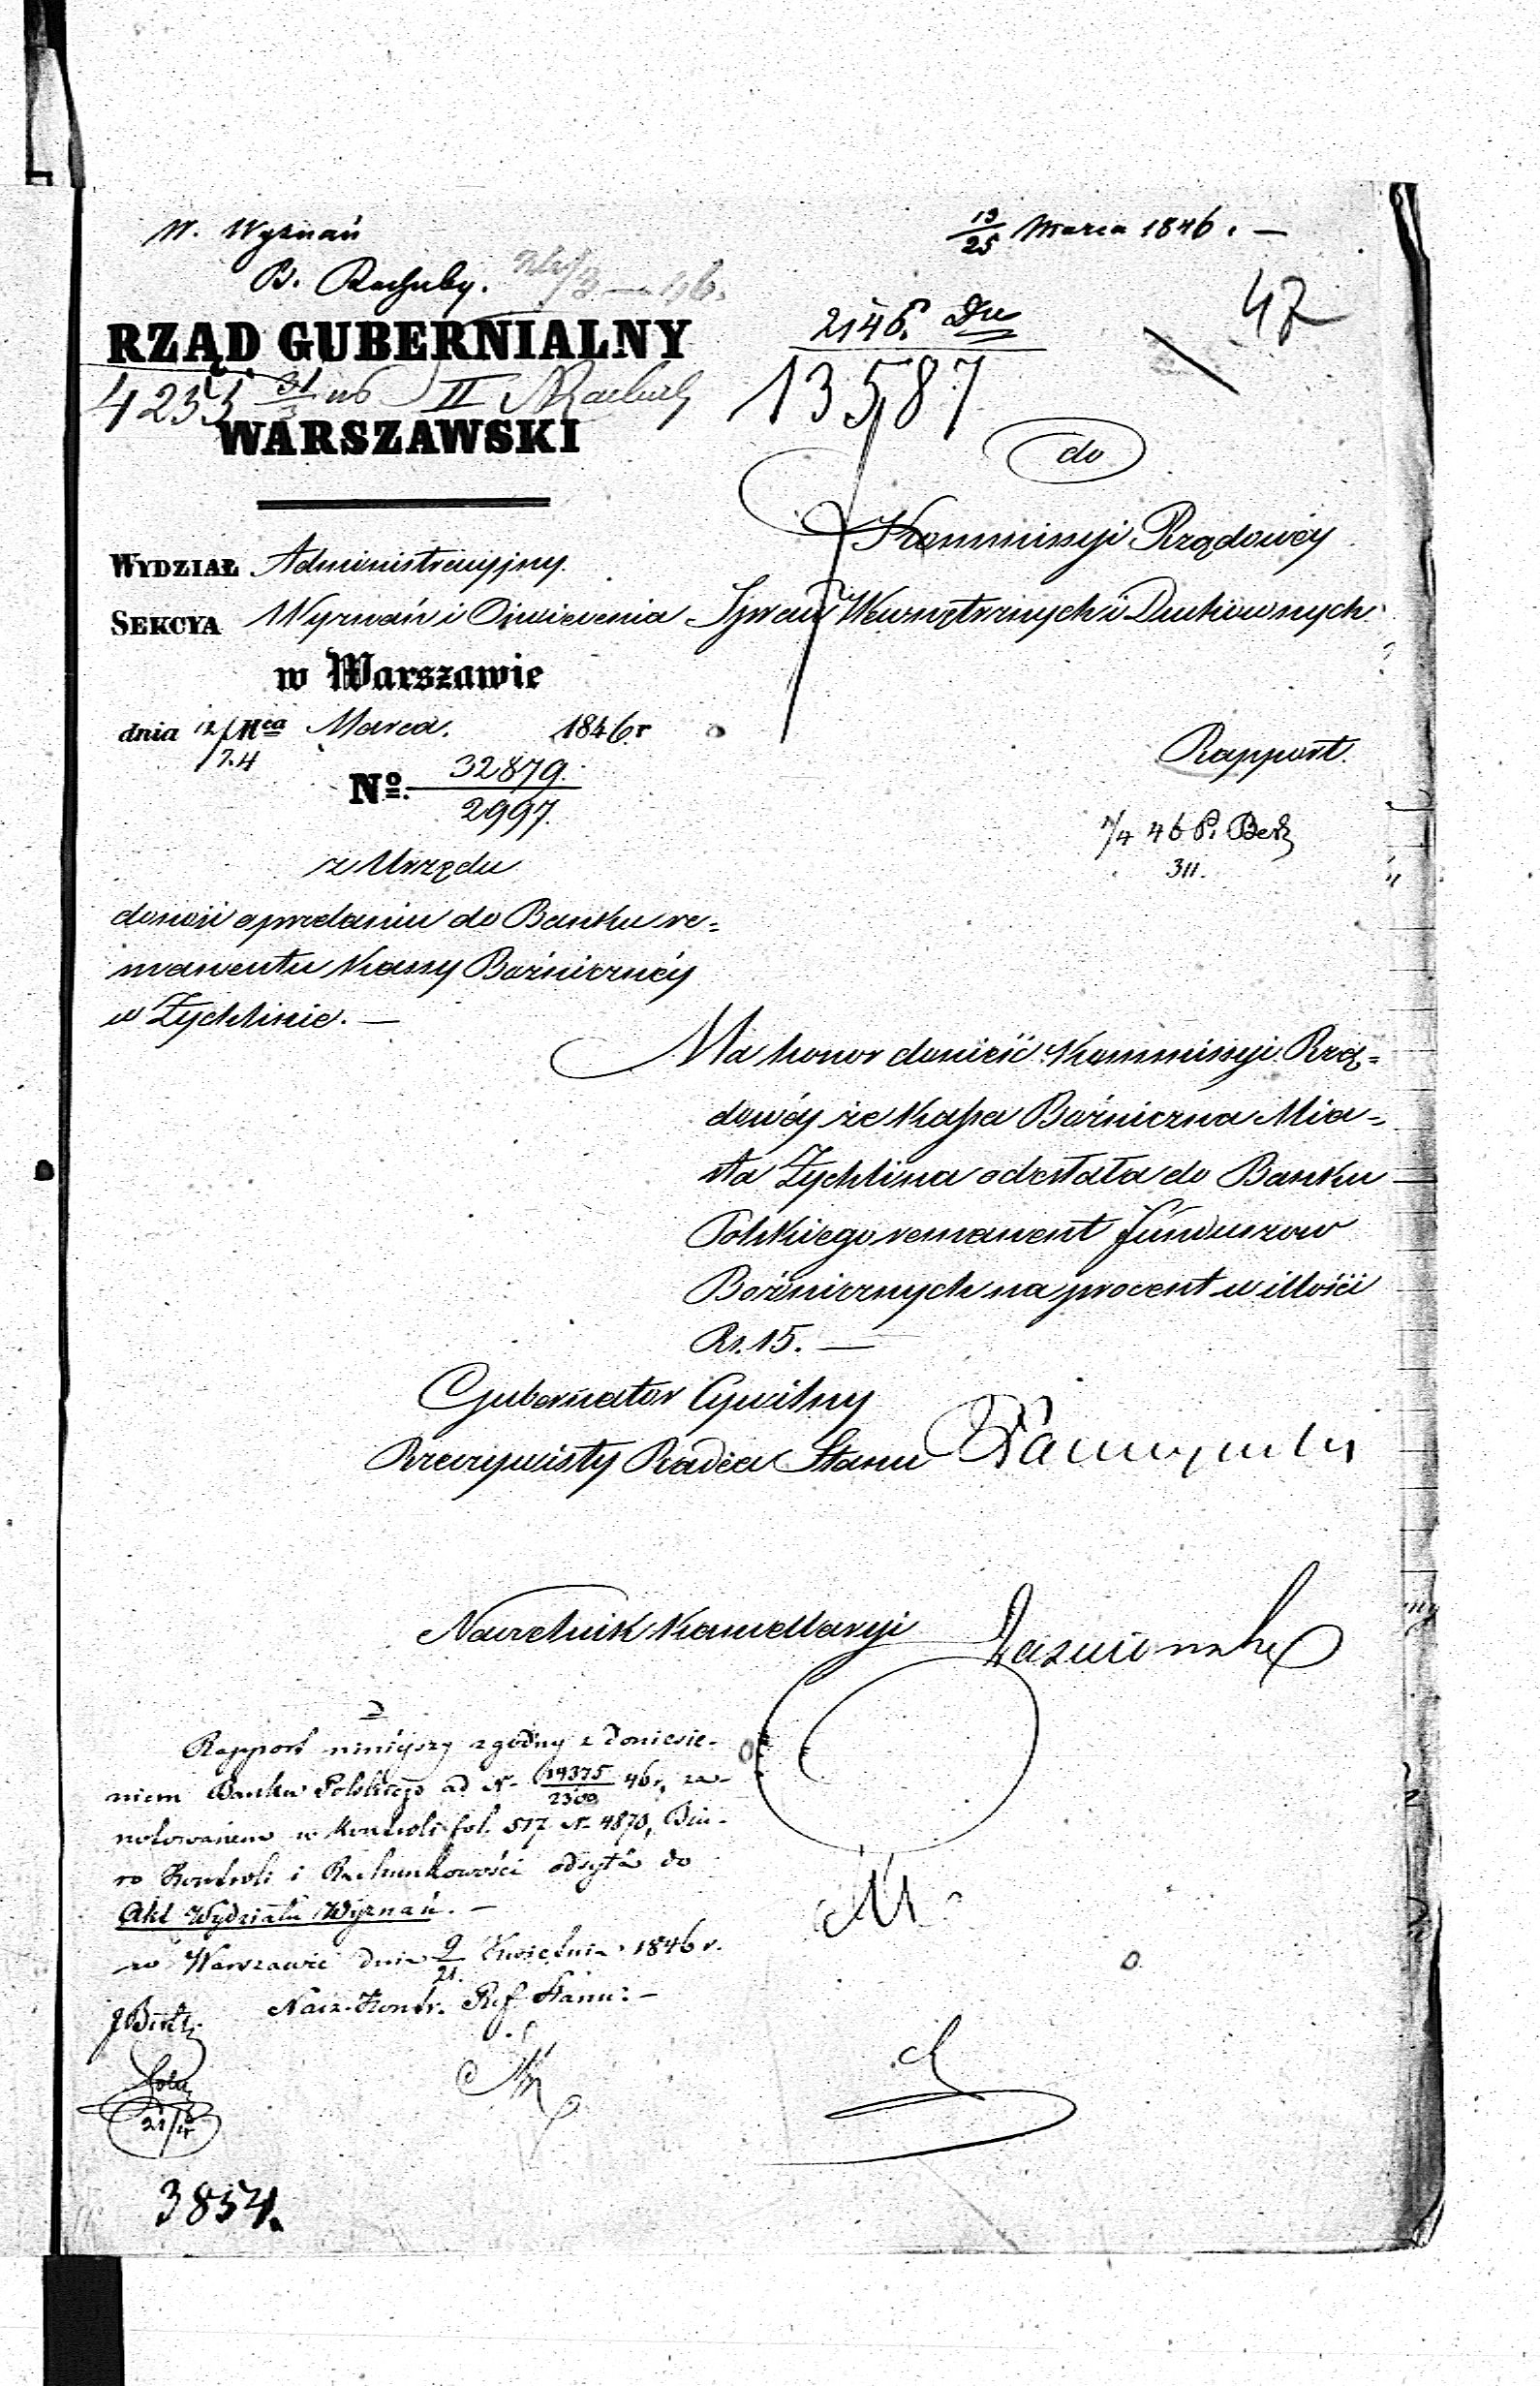 W. Wyznań
B. Rachuby.
13/25 Marca 1846. —
47
RZĄD GUBERNIALNY
2146. Dw
4255 31/3 46 II
13587
WARSZAWSKI
do
Kommissyi Rządowéy
WYDZIAŁ Administracyjny.
SEKCYA Wyznań i Oświecenia
Spraw Wewnętrznych i Duchownych
w Warszawie
dnia 12/24 Mca Marca. 1846 r
Rapport.
No. 32879./2997.
46 P. Berk
311.
z Urzędu
donosi o przelaniu do Banku re=
manentu Kassy Bóźnicznéy
w Żychlinie. —
Ma honor donieść Kommissyi Rzą=
dowéy że Kassa Bóźniczna Mia=
sta Żychlina odesłała do Banku
Polskiego remanent funduszow
Bóźnicznych na procent w illości
Rs. 15. —
Gubernator Cywilny
Rzeczywisty Radca Stanu
Naczelnik Kancellaryi
Rapport niniéjszy zgodny z doniesie-
niem Banku Polskiego ad N. 14375/2300 46 r, za-
notowanem w Kontroli fol. 517 N. 4870, Biu-
ro Kontroli i Rachunkowości odsyła do
Akt Wydziału Wyznań. —
w Warszawie dnia 9/21. Kwietnia 1846 r.
Nacz. Kontr. Ref. Stanu: —
21/4
3854.